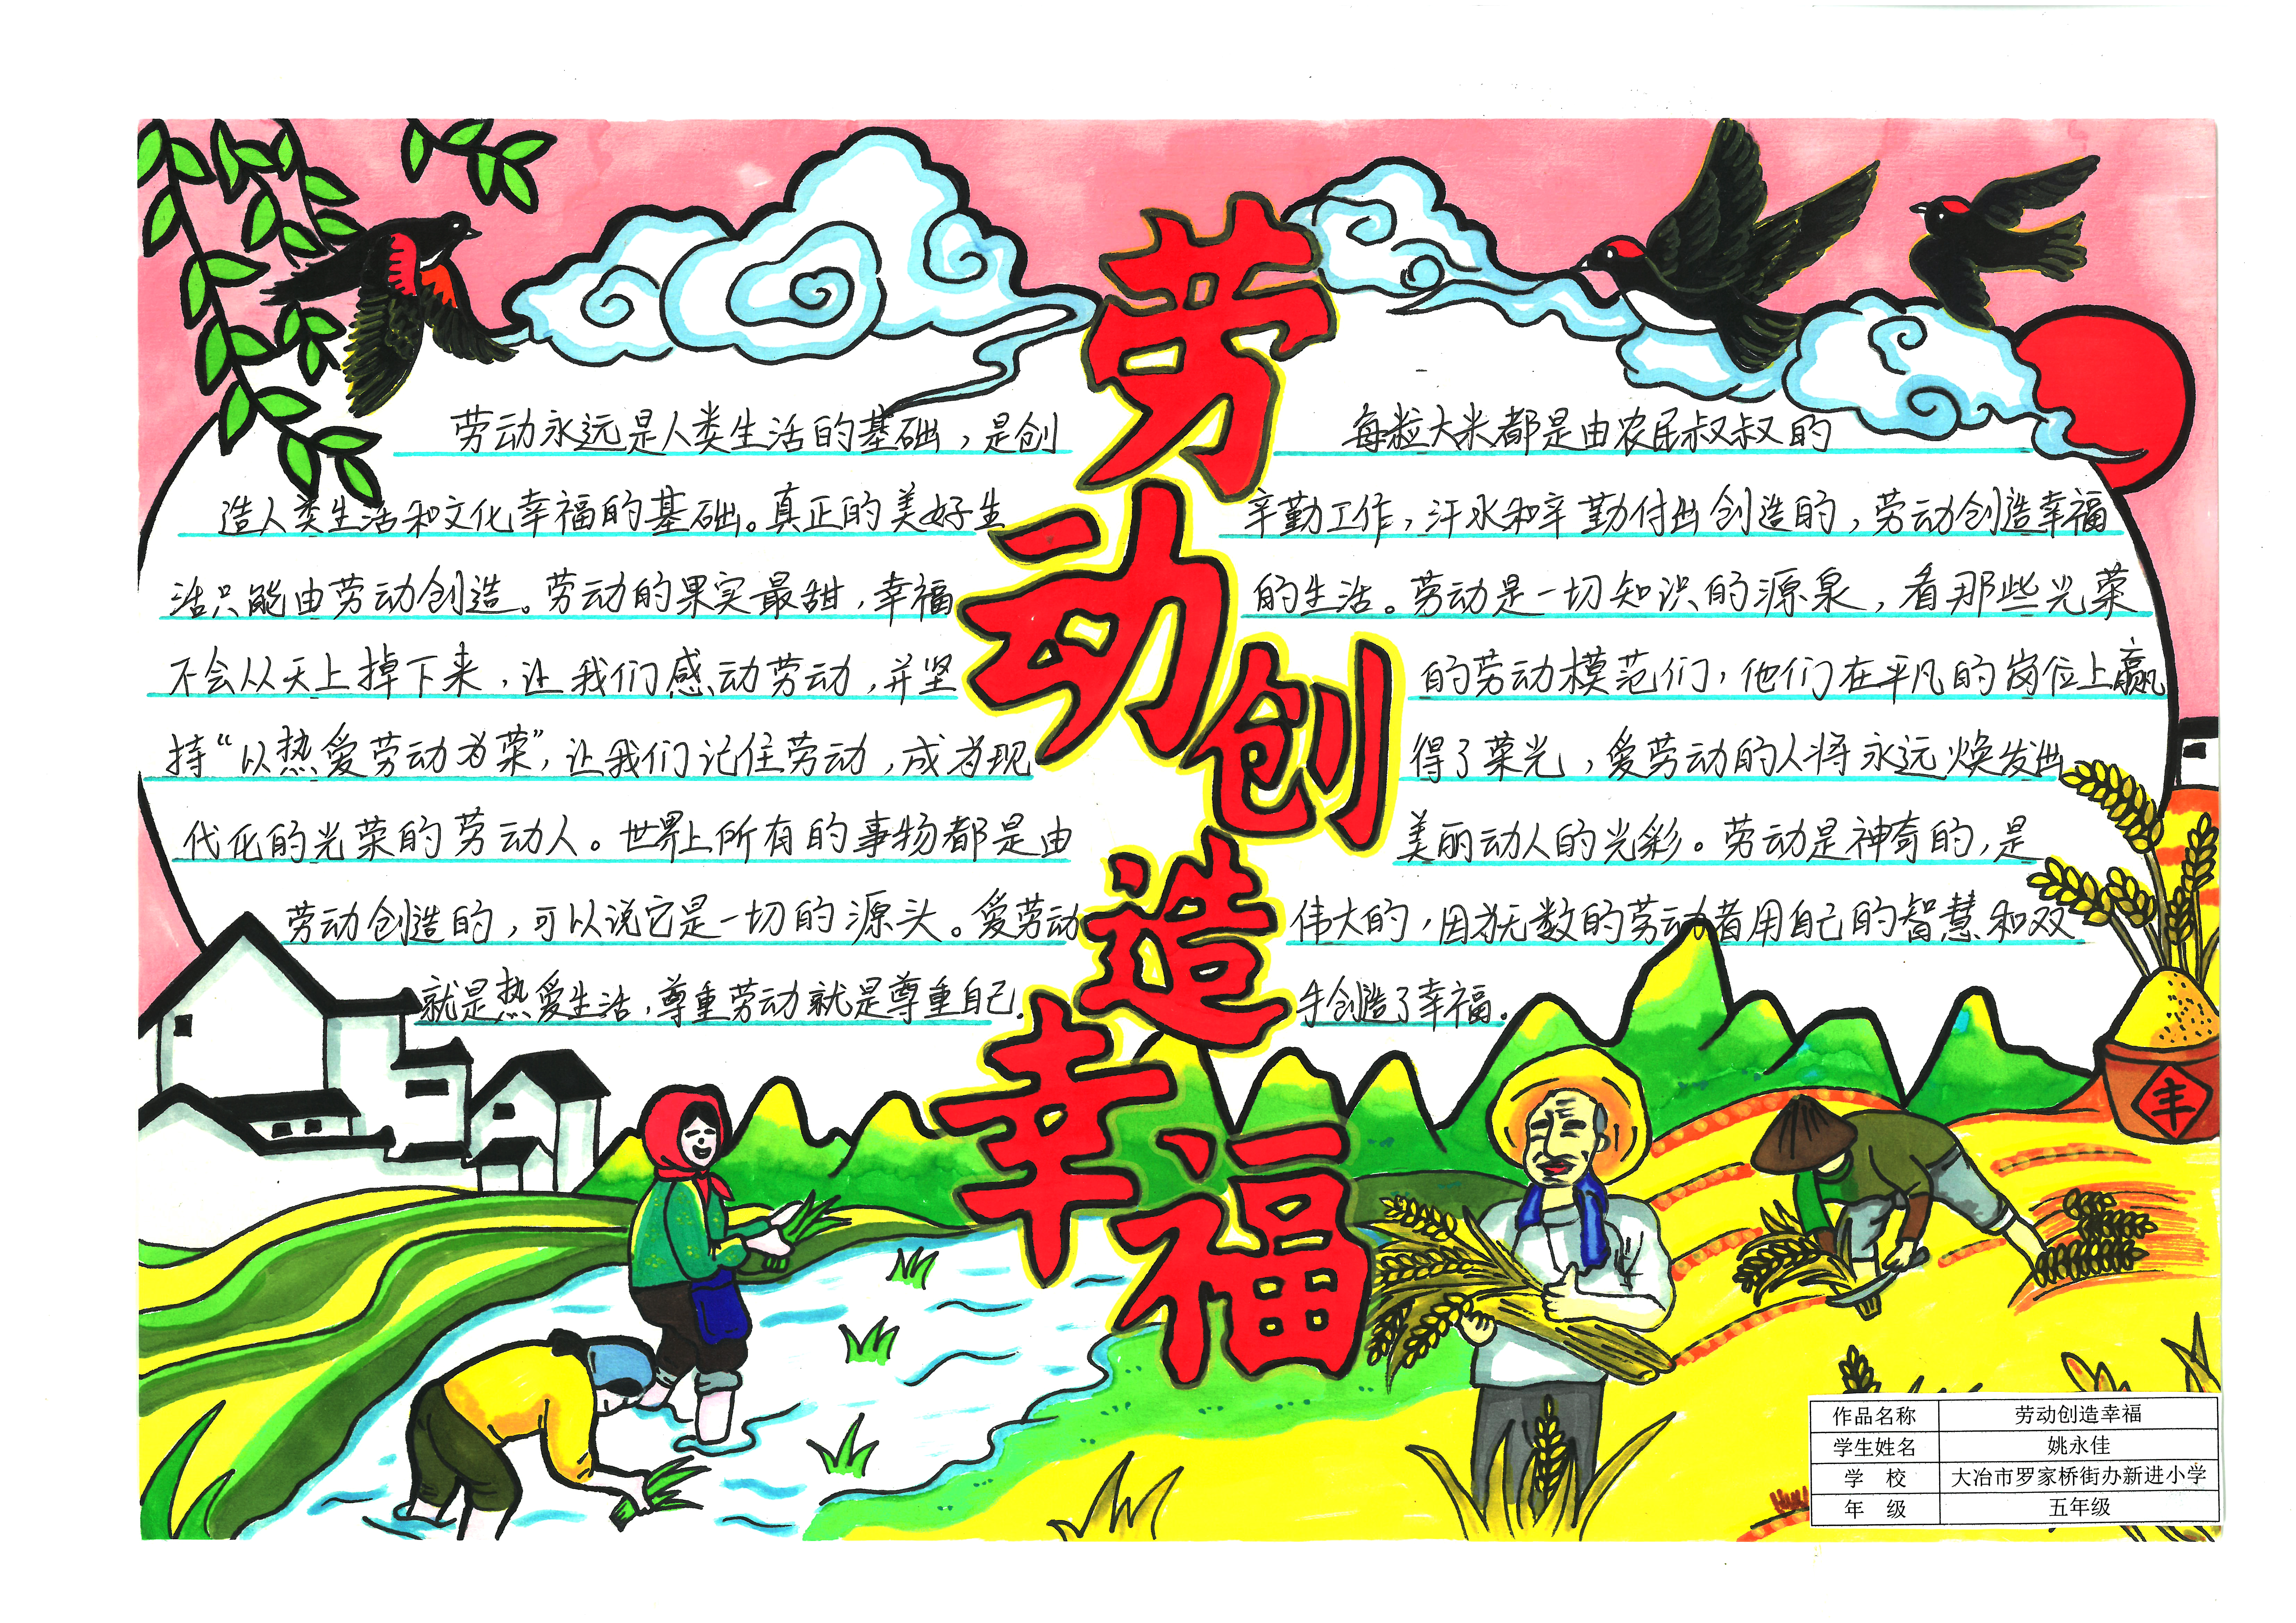 劳动创造幸福
劳动永远是人类生活的基础，是创
造人类生活和文化幸福的基础。真正的美好生
活只能由劳动创造。劳动的果实最甜，幸福
不会从天上掉下来，让我们感动劳动，并坚
持“以热爱劳动为荣”，让我们记住劳动，成为现
代化的光荣的劳动人。世界上所有的事物都是由
劳动创造的，可以说它是一切的源头。爱劳动
就是热爱生活，尊重劳动就是尊重自己.
每粒大米都是由农民叔叔的
辛勤工作，汗水和辛勤付出创造的，劳动创造幸福
的生活。劳动是一切知识的源泉，看那些光荣
的劳动模范们，他们在平凡的岗位上赢
得了荣光，爱劳动的人将永远焕发出
美丽动人的光彩。劳动是神奇的，是
伟大的，因为无数的劳动者用自己的智慧和双
手创造了幸福.
丰
作品名称 劳动创造幸福
学生姓名 姚永佳
学 校 大冶市罗家桥街办新进小学
年 级 五年级